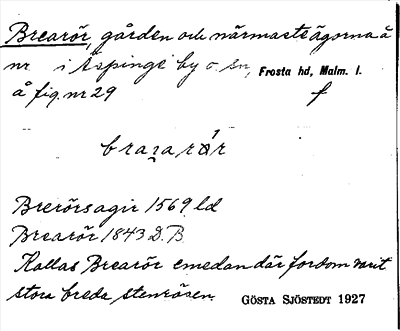 Brearör, gården och närmaste ägorna å
nr i Äspinge by o sn, Frosta hd, Malm. l.
å fig. nr 29 f
Brerörsagir 1569 ld
Brearör 1843 D.B.
Kallas Brearör emedan där fordom varit
stora breda stenrösen.
GÖSTA SJÖSTEDT 1927